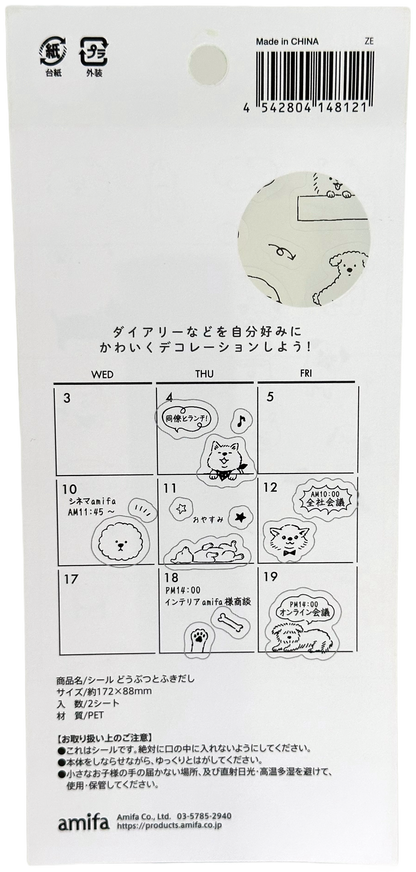 紙
台紙
プラ
外装
Made in CHINA
ZE
4 542804 148121
ダイアリーなどを自分好みに
かわいくデコレーションしよう!
WED THU FRI
3 4 5
同僚とランチ!
10 11 12
シネマamifa
AM11:45 〜
おやすみ
AM10:00
全社会議
17 18 19
PM14:00
インテリアamifa 様商談
PM14:00
オンライン会議
商品名/シール どうぶつとふきだし
サイズ/約172×88mm
入 数/2シート
材 質/PET
【お取り扱い上のご注意】
●これはシールです。絶対に口の中に入れないようにしてください。
●本体をしならせながら、ゆっくりとはがしてください。
●小さなお子様の手の届かない場所、及び直射日光・高温多湿を避けて、
使用・保管してください。
amifa
Amifa Co., Ltd. 03-5785-2940
https://products.amifa.co.jp